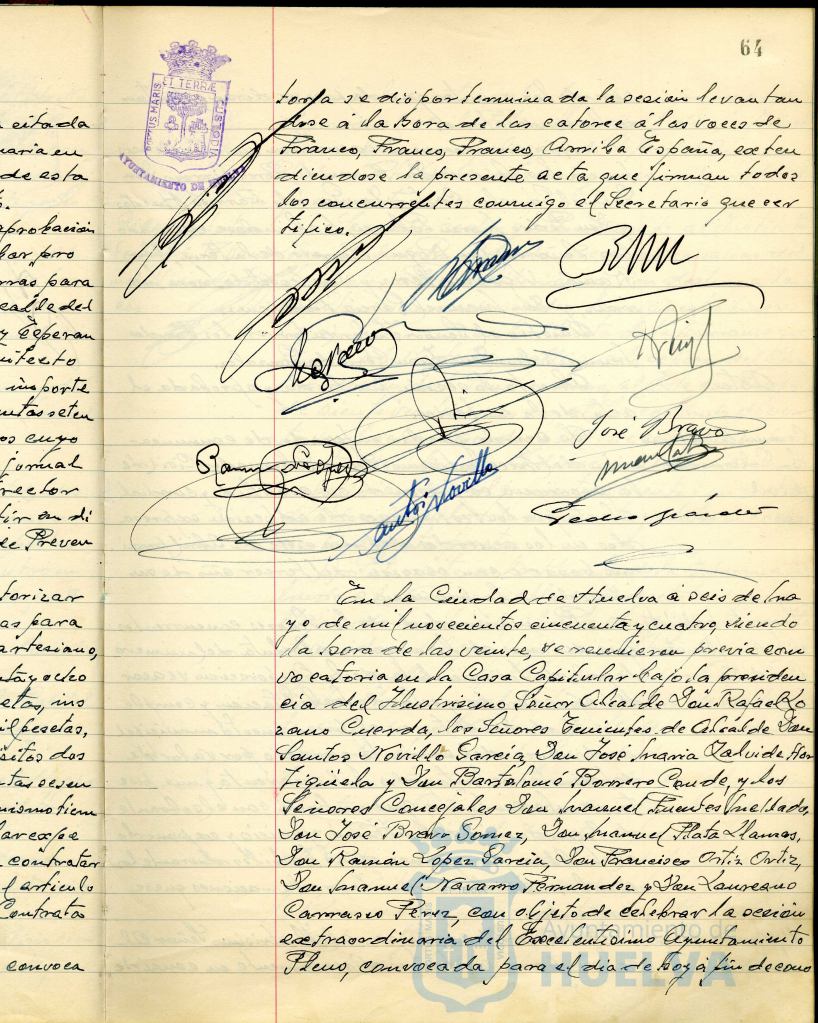 64
ET TERRÆ
PORTUS MARIS
CUSTODIA
AYUNTAMIENTO DE HUELVA
citada
naria en
de esta
s.
aprobacion
lar pro
rras para
calde del
y Esperan
uitecto
importe
untas seten
os cuyo
jornal
rector
tir en di
de Preven
torizar
as para
artesiano,
nta y ocho
etas, ins
il pesetas,
sitos dos
ntas sesen
nismo tiem
lar expe
contratar
l articulo
Contrato
convoca
toria se dió por terminada la sesión levantan
dose á la hora de las catorce á las voces de
Franco, Franco, Franco, Arriba España, exten
diendose la presente acta que firman todos
los concurrentes conmigo el Secretario que cer
tifico.
José Bravo
Ramon López
Antonio Novillo
Pedro
En la Ciudad de Huelva á seis de Ma
yo de mil novecientos cincuenta y cuatro, siendo
la hora de las veinte, se reunieron previa con
vocatoria en la Casa Capitular bajo la presiden
cia del Ilustrisimo Señor Alcalde Don Rafael Lo
zano Cuerda, los Señores Tenientes de Alcalde Don
Santos Novillo García, Don José Maria Zalvide Hor
tigüela y Don Bartolomé Borrero Conde, y los
Señores Concejales Don Manuel Fuentes Mellado,
Don José Bravo Gomez, Don Manuel Plata Llamas,
Don Ramón López García, Don Francisco Ortiz Ortiz,
Don Manuel Navarro Fernandez y Don Laureano
Carrasco Perez, con objeto de celebrar la sesión
extraordinaria del Excelentísimo Ayuntamiento
Pleno, convocada para el dia de hoy á fin de cono
Ayuntamiento de
HUELVA